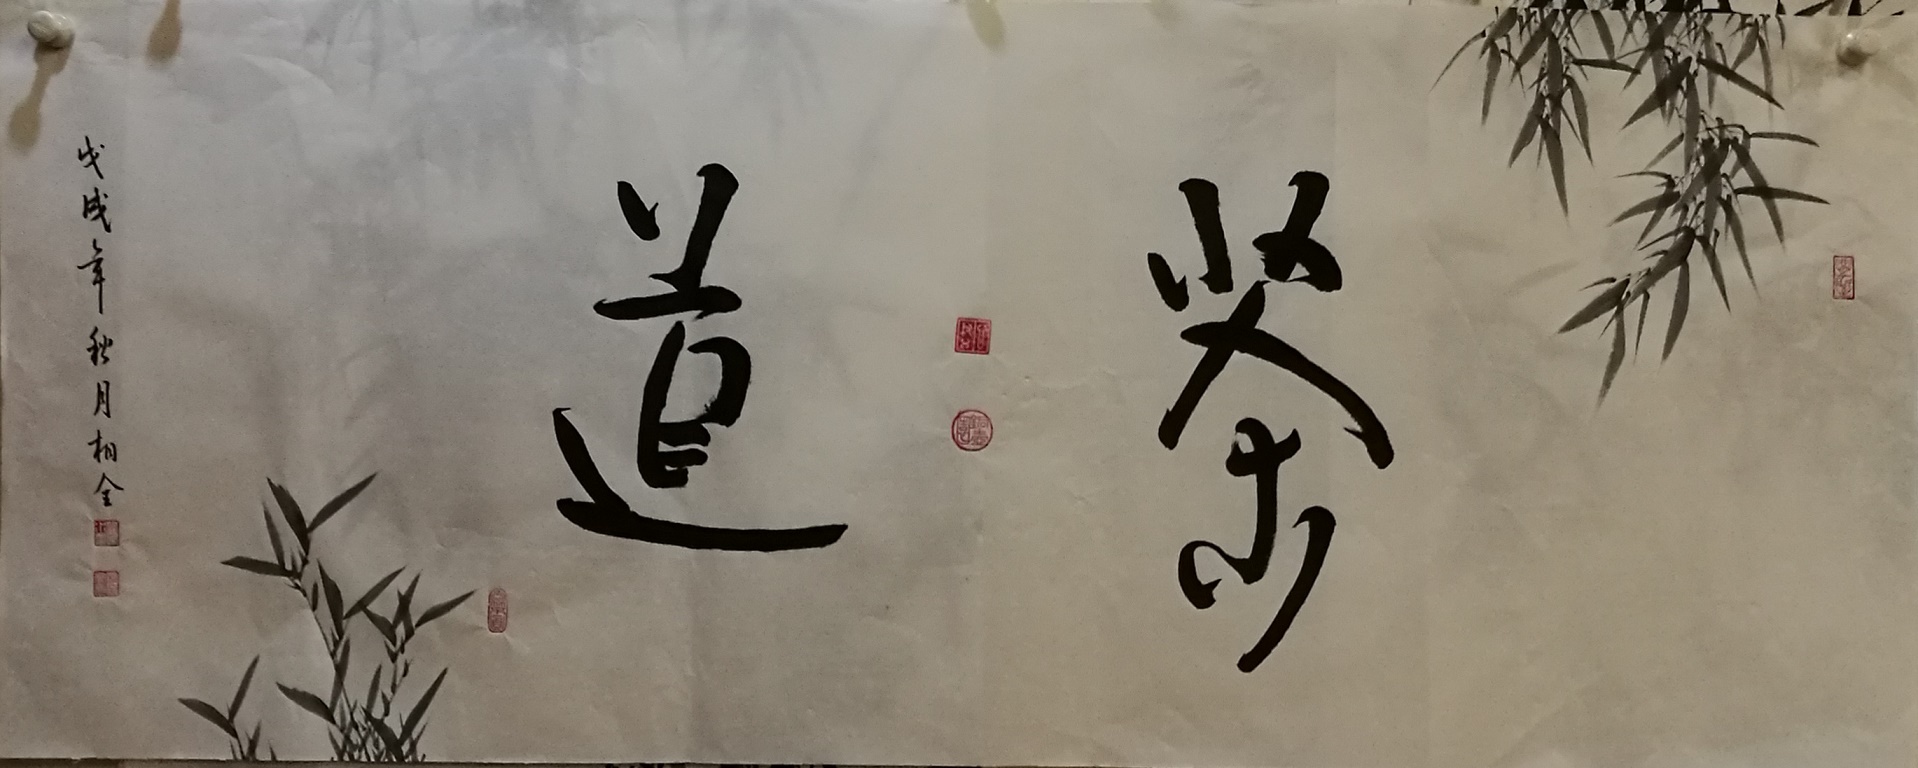 茶道
戊戌年秋月相金